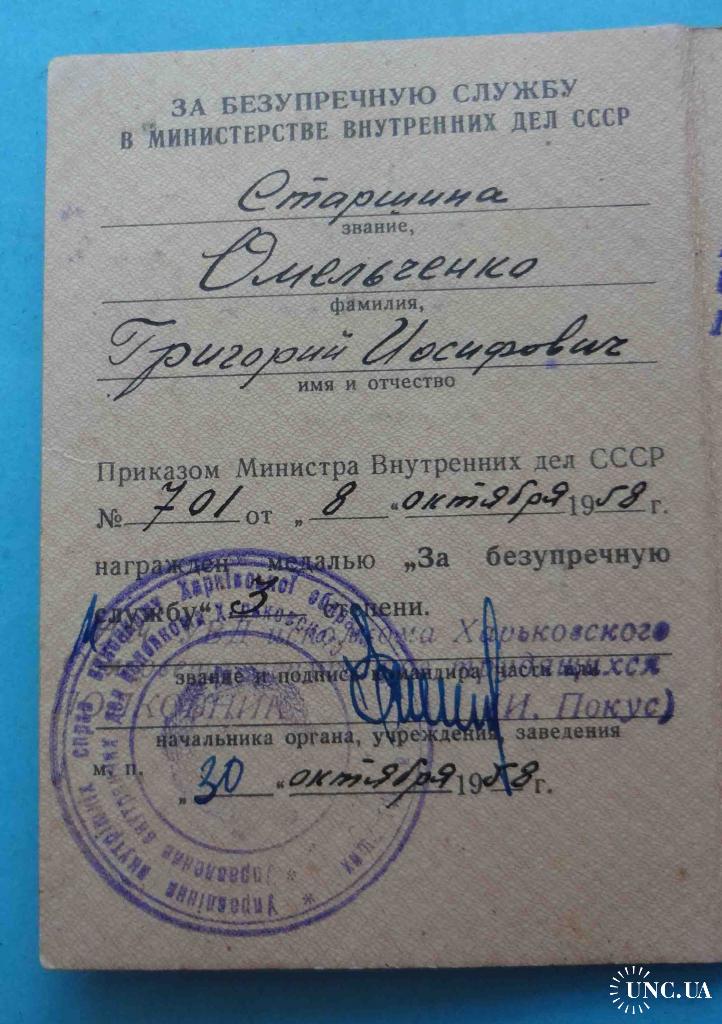 ЗА БЕЗУПРЕЧНУЮ СЛУЖБУ
В МИНИСТЕРСТВЕ ВНУТРЕННИХ ДЕЛ СССР
Старшина
звание,
Омельченко
фамилия,
Григорий Иосифович
имя и отчество
Приказом Министра Внутренних дел СССР
№ 701 от „ 8 “ октября 1958 г.
награжден медалью „За безупречную
службу“ 3 степени.
исполкома Харьковского
звание и подпись командира части или
(И. Покус)
начальника органа, учреждения, заведения
м. п.
„ 30 “ октября 1958 г.
Управління внутрішніх справ Харківської
Управление внутренних дел Харьковского
UNC.UA